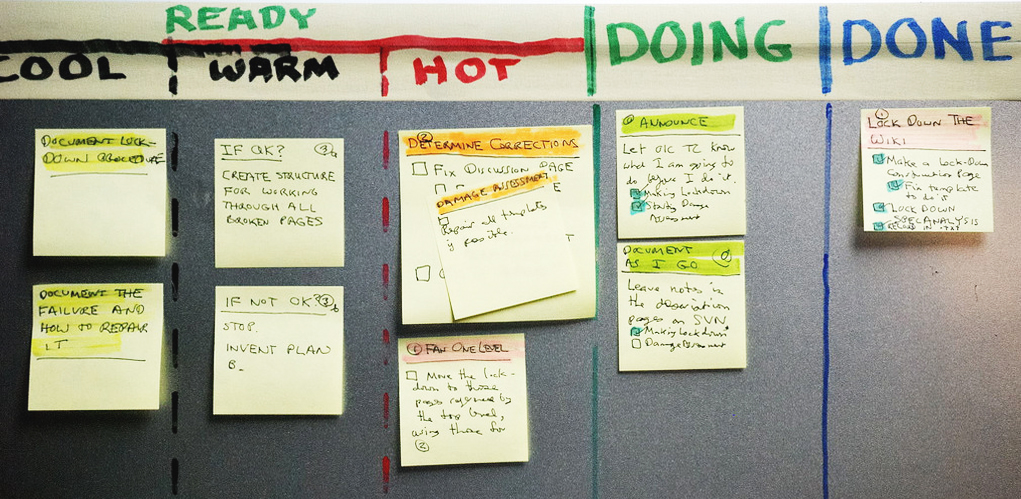 READY
COOL
WARM
HOT
DOING
DONE
DOCUMENT LOCK-
DOWN PROCEDURE
DOCUMENT THE
FAILURE AND
HOW TO REPAIR
IT
IF OK?
CREATE STRUCTURE
FOR WORKING
THROUGH ALL
BROKEN PAGES
IF NOT OK?
STOP.
INVENT PLAN
B.
2
DETERMINE CORRECTIONS
FIX DISCUSSION PAGE
DAMAGE ASSESSMENT
Repair all templates
if possible.
1 FAN ONE LEVEL
Move the lock-
down to those
pages referenced by
the top level,
using those for
2
ANNOUNCE
Let OIC TC know
what I am going to
do before I do it.
Making Lockdown
Starting Damage
Assessment
DOCUMENT
AS I GO
Leave notes in
the description
pages on SVN
Making Lockdown
Damage Assessment
1
LOCK DOWN THE
WIKI
Make a Lock-Down
Construction Page
Fix template
to do it
LOCK DOWN
SPEC ANALYSIS